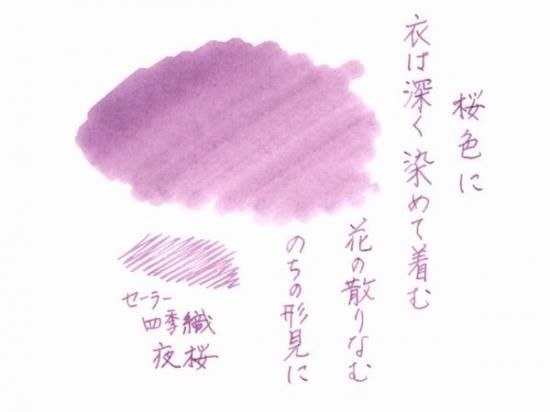 桜色に
衣は深く染めて着む
花の散りなむ
のちの形見に
セーラー
四季織
夜桜